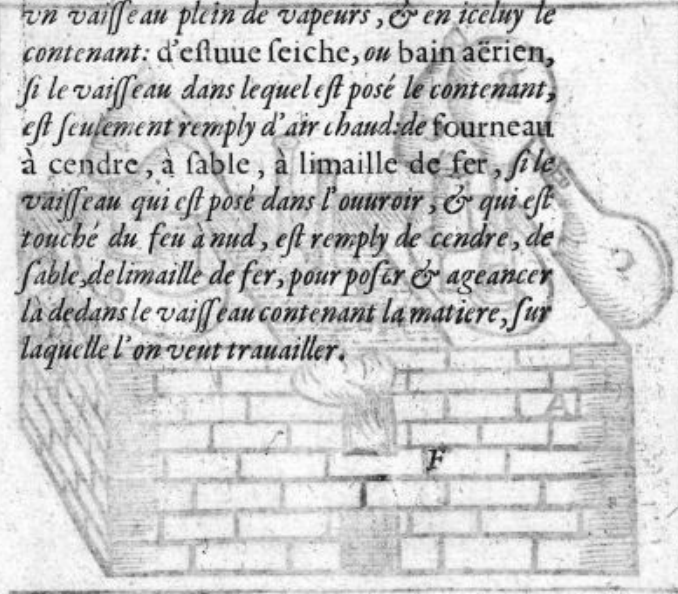 vn vaiſſeau plein de vapeurs, & en iceluy le
contenant: d'eſtuue ſeiche, ou bain aërien,
ſi le vaiſſeau dans lequel eſt posé le contenant,
eſt ſeulement remply d'air chaud: de fourneau
à cendre, à ſable, à limaille de fer, ſi le
vaiſſeau qui eſt posé dans l'ouuroir, & qui eſt
touché du feu a nud, eſt remply de cendre, de
ſable, de limaille de fer, pour poſer & ageancer
là dedans le vaiſſeau contenant la matiere, ſur
laquelle l'on veut trauailler.
F